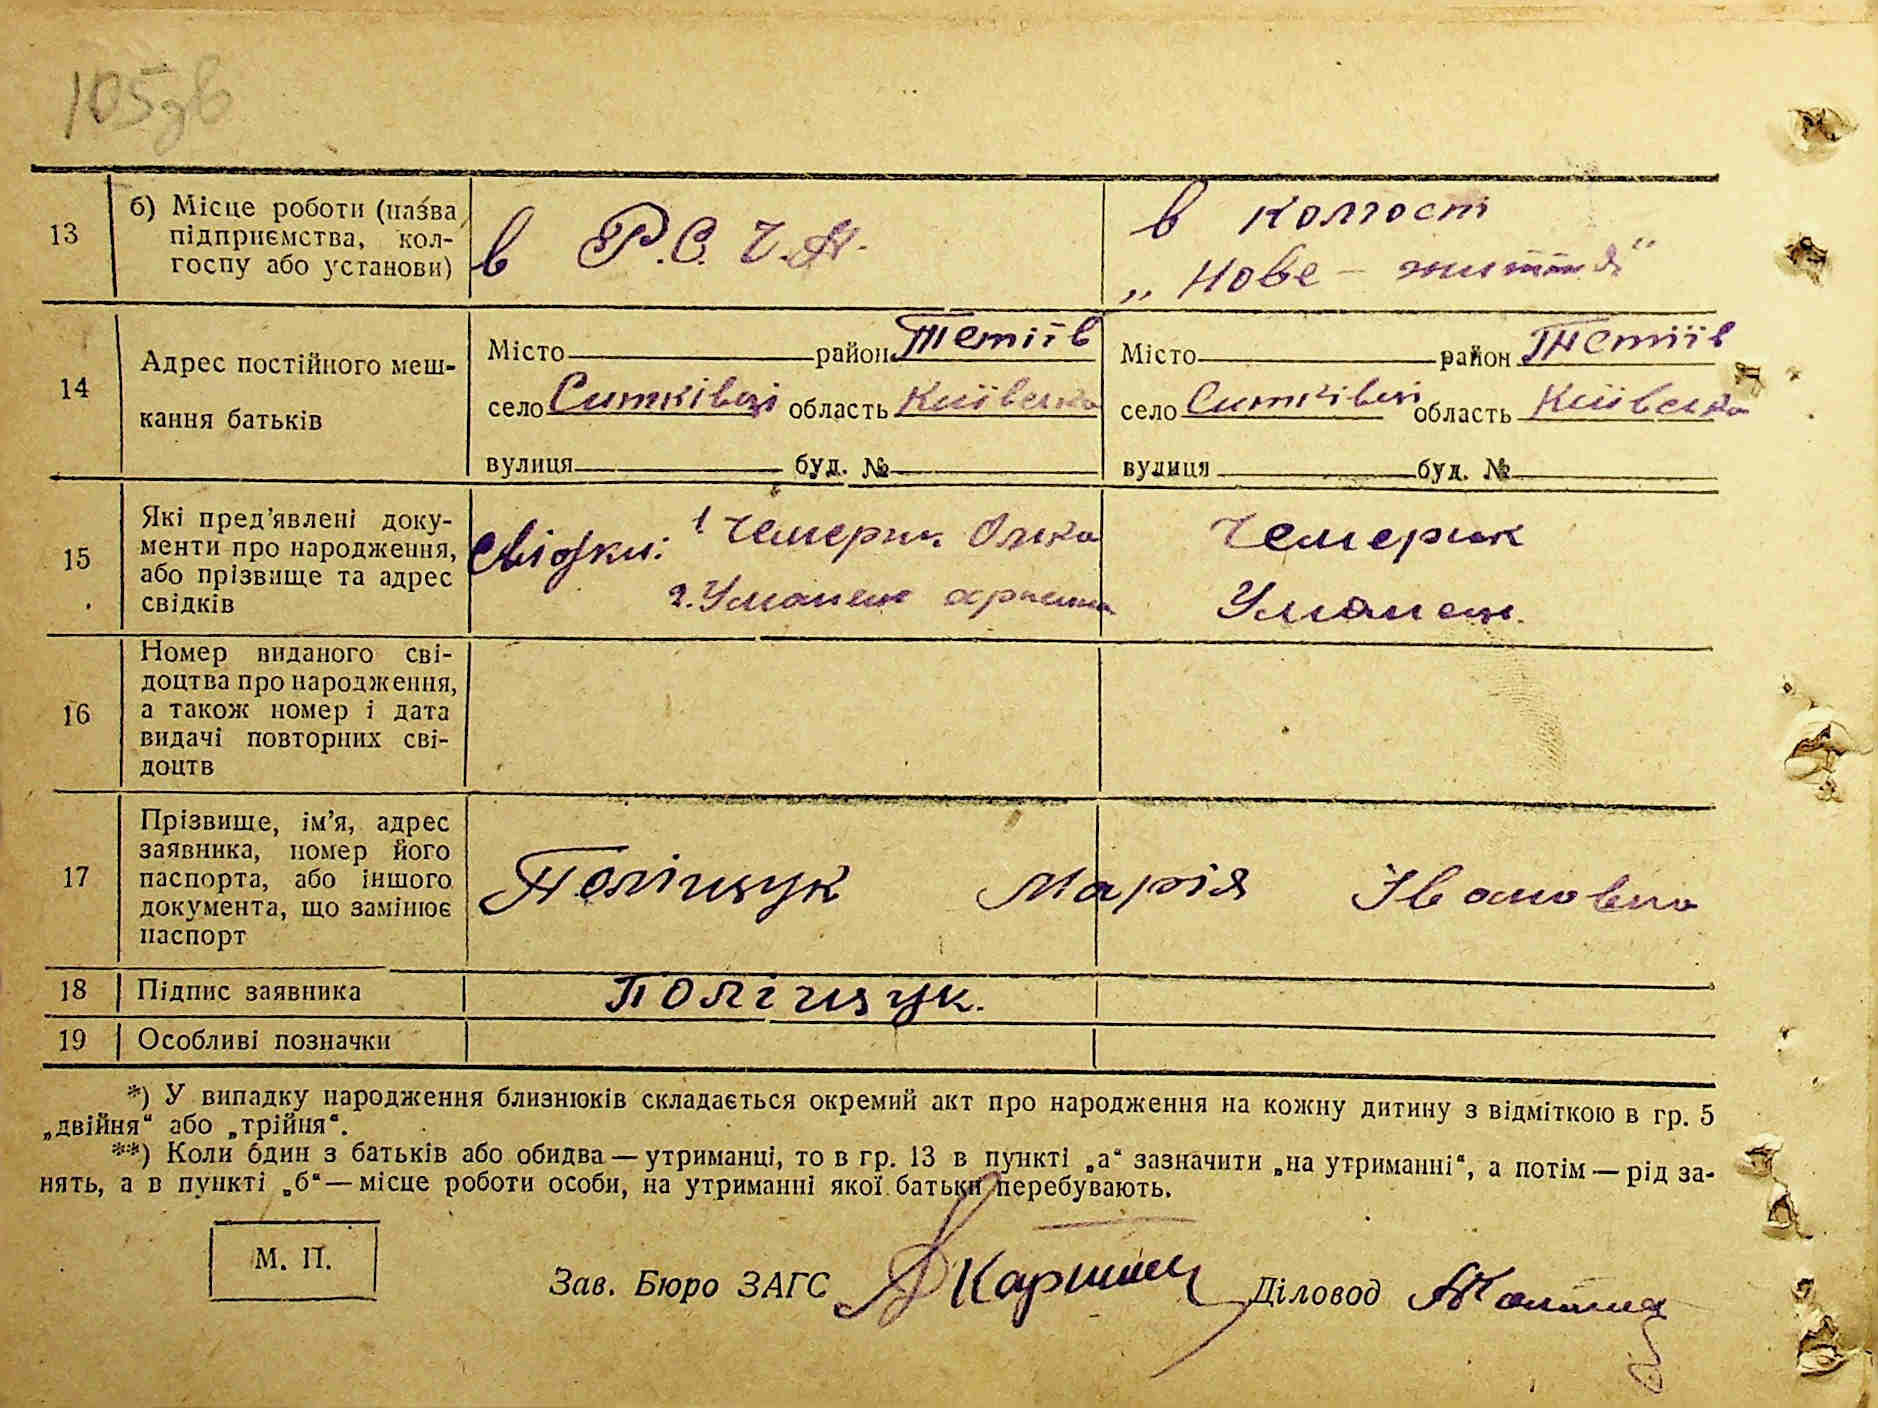 105зв
13
б) Місце роботи (назва підприємства, колгоспу або установи)
в Р.С.Ч.А.
в колгост
„Нове – життя"
14
Адрес постійного мешкання батьків
Місто район Тетіїв
село Ситківці область Київська
вулиця буд. №
Місто район Тетіїв
село Ситківці область Київська
вулиця буд. №
15
Які пред'явлені документи про народження, або прізвище та адрес свідків
свідки: 1 Чемерик Олка
2. Уманець
Чемерик
Уманець.
16
Номер виданого свідоцтва про народження, а також номер і дата видачі повторних свідоцтв
17
Прізвище, ім'я, адрес заявника, номер його паспорта, або іншого документа, що замінює паспорт
Поліщук Марія Івановна
18
Підпис заявника
Поліщук.
19
Особливі позначки
*) У випадку народження близнюків складається окремий акт про народження на кожну дитину з відміткою в гр. 5
„двійня" або „трійня".
**) Коли один з батьків або обидва — утриманці, то в гр. 13 в пункті „а" зазначити „на утриманні", а потім — рід за-
нять, а в пункті „б" — місце роботи особи, на утриманні якої батьки перебувають.
М. П.
Зав. Бюро ЗАГС
Діловод